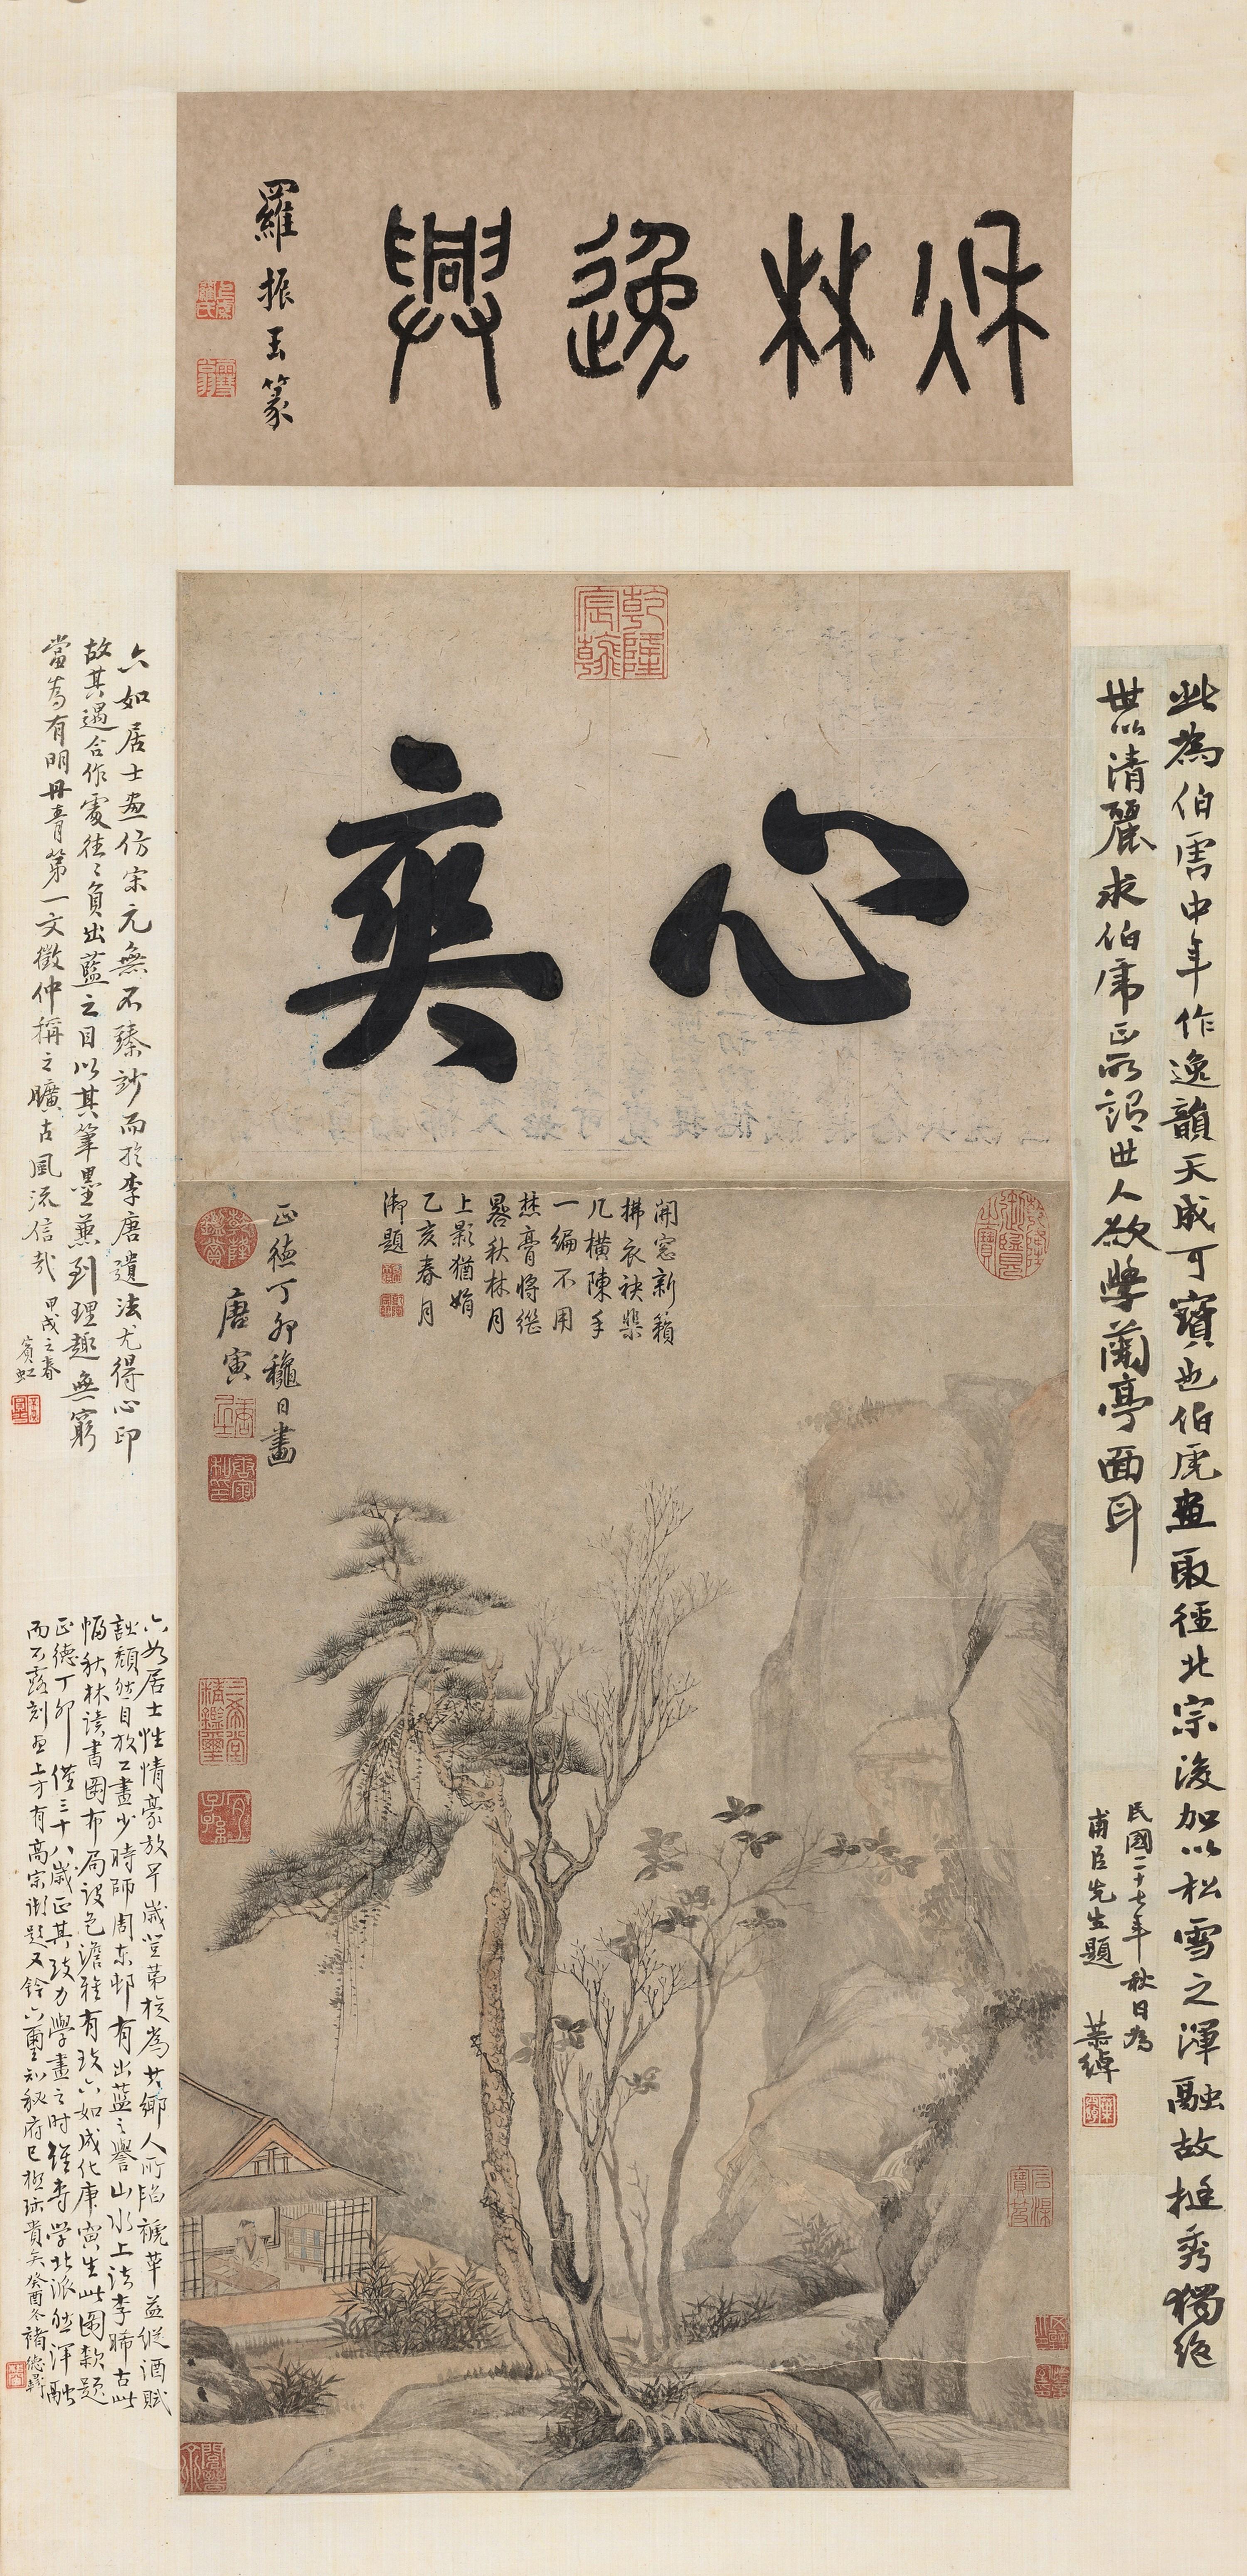 秋林逸興
羅振玉篆
乾隆
宸翰
心爽
開窓新籟
拂衣袂棐
几横陳手
一編不用
焚膏将繼
晷秋林月
上影猶娟
乙亥春月
御題
正德丁卯穐日畫
唐寅
此為伯虎中年作逸韻天成可寶也伯虎畫取徑北宗淩加以松雪之渾融故挺秀獨絶
世以清麗求伯虎正所謂世人欲學蘭亭面耳
民國二十七年秋日為
甫臣先生題
恭綽
六如居士畫仿宋元無不臻妙而於李唐遺法尤得心印
故其遇合作處往往負出藍之目以其筆墨兼到理趣無窮
當為有明丹青第一文徵仲稱之曠古風流信哉
甲戌之春
賓虹
六如居士性情豪放早歲登第旋為其鄉人所陷褫革益縱酒賦
詩頹然自放工畫少時師周東邨有出藍之譽山水上法李晞古此
幅秋林讀書圖布局設色澹雅有致六如成化庚寅生此圖款題
正德丁卯僅三十八歲正其致力學畫之時雖專學北派然渾融
而不露刻畫上方有高宗御題又鈐六璽知秘府已極珍貴矣癸酉冬褚德彝